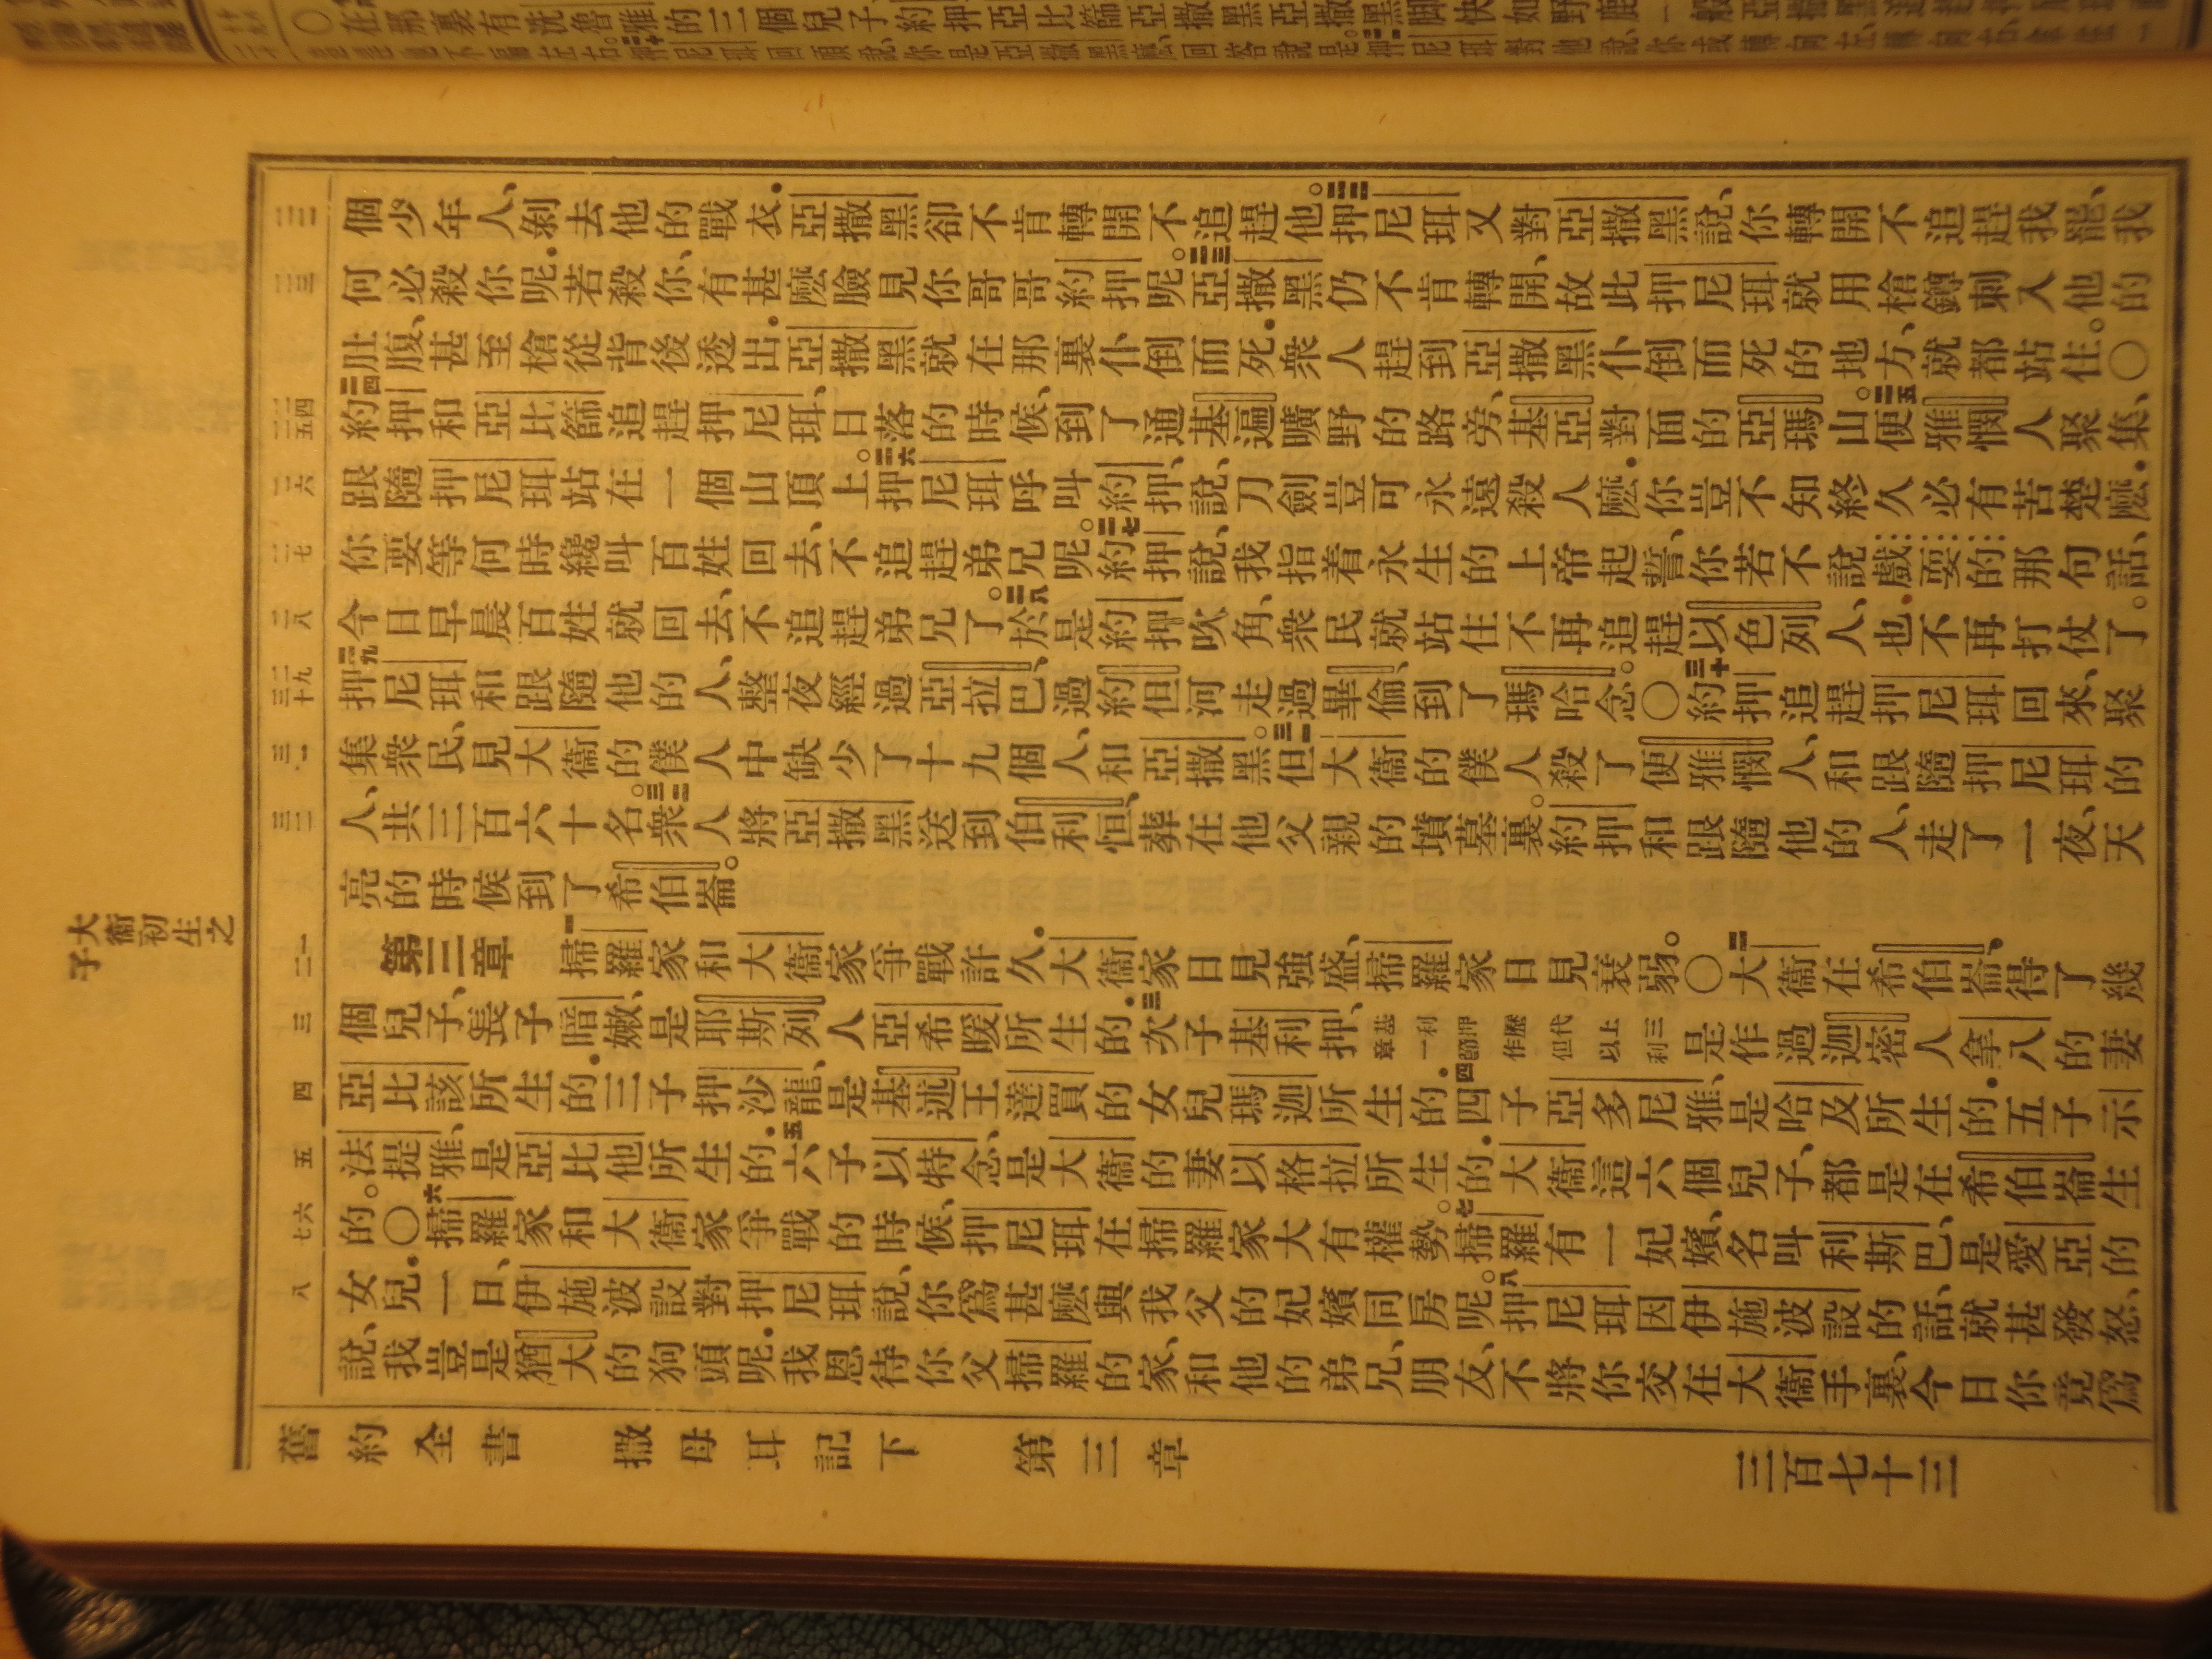 個少年人、剝去他的戰衣．亞撒黑卻不肯轉開不追趕他。三三押尼珥又對亞撒黑說、你轉開不追趕我罷、我
何必殺你呢．若殺你、有甚麼臉見你哥哥約押呢。三三亞撒黑仍不肯轉開、故此押尼珥就用槍鐏刺入他的
肚腹、甚至槍從背後透出．亞撒黑就在那裏仆倒而死．衆人趕到亞撒黑仆倒而死的地方、就都站住。〇
二四約押和亞比篩追趕押尼珥、日落的時候、到了通基遍曠野的路旁、基亞對面的亞瑪山。二五便雅憫人聚集、
跟隨押尼珥站在一個山頂上。二六押尼珥呼叫約押、說、刀劍豈可永遠殺人麼．你豈不知終久必有苦楚麼．
你要等何時纔叫百姓回去、不追趕弟兄呢。二七約押說、我指着永生的上帝起誓、你若不說戲耍的那句話、
今日早晨百姓就回去、不追趕弟兄了。二八於是約押吹角、衆民就站住不再追趕以色列人、也不再打仗了。
二九押尼珥和跟隨他的人、整夜經過亞拉巴、過約但河走過畢倫、到了瑪哈念。〇三十約押追趕押尼珥回來、聚
集衆民、見大衞的僕人中缺少了十九個人、和亞撒黑。三一但大衞的僕人殺了便雅憫人、和跟隨押尼珥的
人、共三百六十名。三二衆人將亞撒黑送到伯利恒、葬在他父親的墳墓裏。約押和跟隨他的人、走了一夜、天
亮的時候到了希伯崙。
大衞初生之子
第三章 一掃羅家和大衞家爭戰許久．大衞家日見強盛、掃羅家日見衰弱。〇二大衞在希伯崙得了幾
個兒子、長子暗嫩、是耶斯列人亞希暖所生的．三次子基利押、基利押歷代上三章一節作但以利是作過迦密人拿八的妻
亞比該所生的．三子押沙龍、是基述王達買的女兒瑪迦所生的．四四子亞多尼雅、是哈及所生的．五子示
法提雅、是亞比他所生的．五六子以特念、是大衞的妻以格拉所生的．大衞這六個兒子、都是在希伯崙生
的。〇六掃羅家和大衞家爭戰的時候、押尼珥在掃羅家大有權勢。七掃羅有一妃嬪、名叫利斯巴、是愛亞的
女兒．一日、伊施波設對押尼珥說、你爲甚麼與我父的妃嬪同房呢。八押尼珥因伊施波設的話、就甚發怒、
說、我豈是猶大的狗頭呢．我恩待你父掃羅的家、和他的弟兄、朋友、不將你交在大衞手裏、今日你竟爲
舊約全書 撒母耳記下 第三章 三百七十三